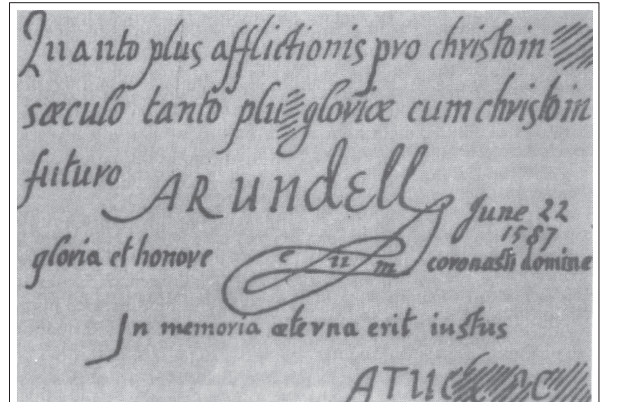 Quanto plus afflictionis pro christo in
sæculo tanto plu gloriæ cum christo in
futuro
ARUNDELL
June 22
1587
gloria et honore e u m coronasti domine
In memoria æterna erit iustus